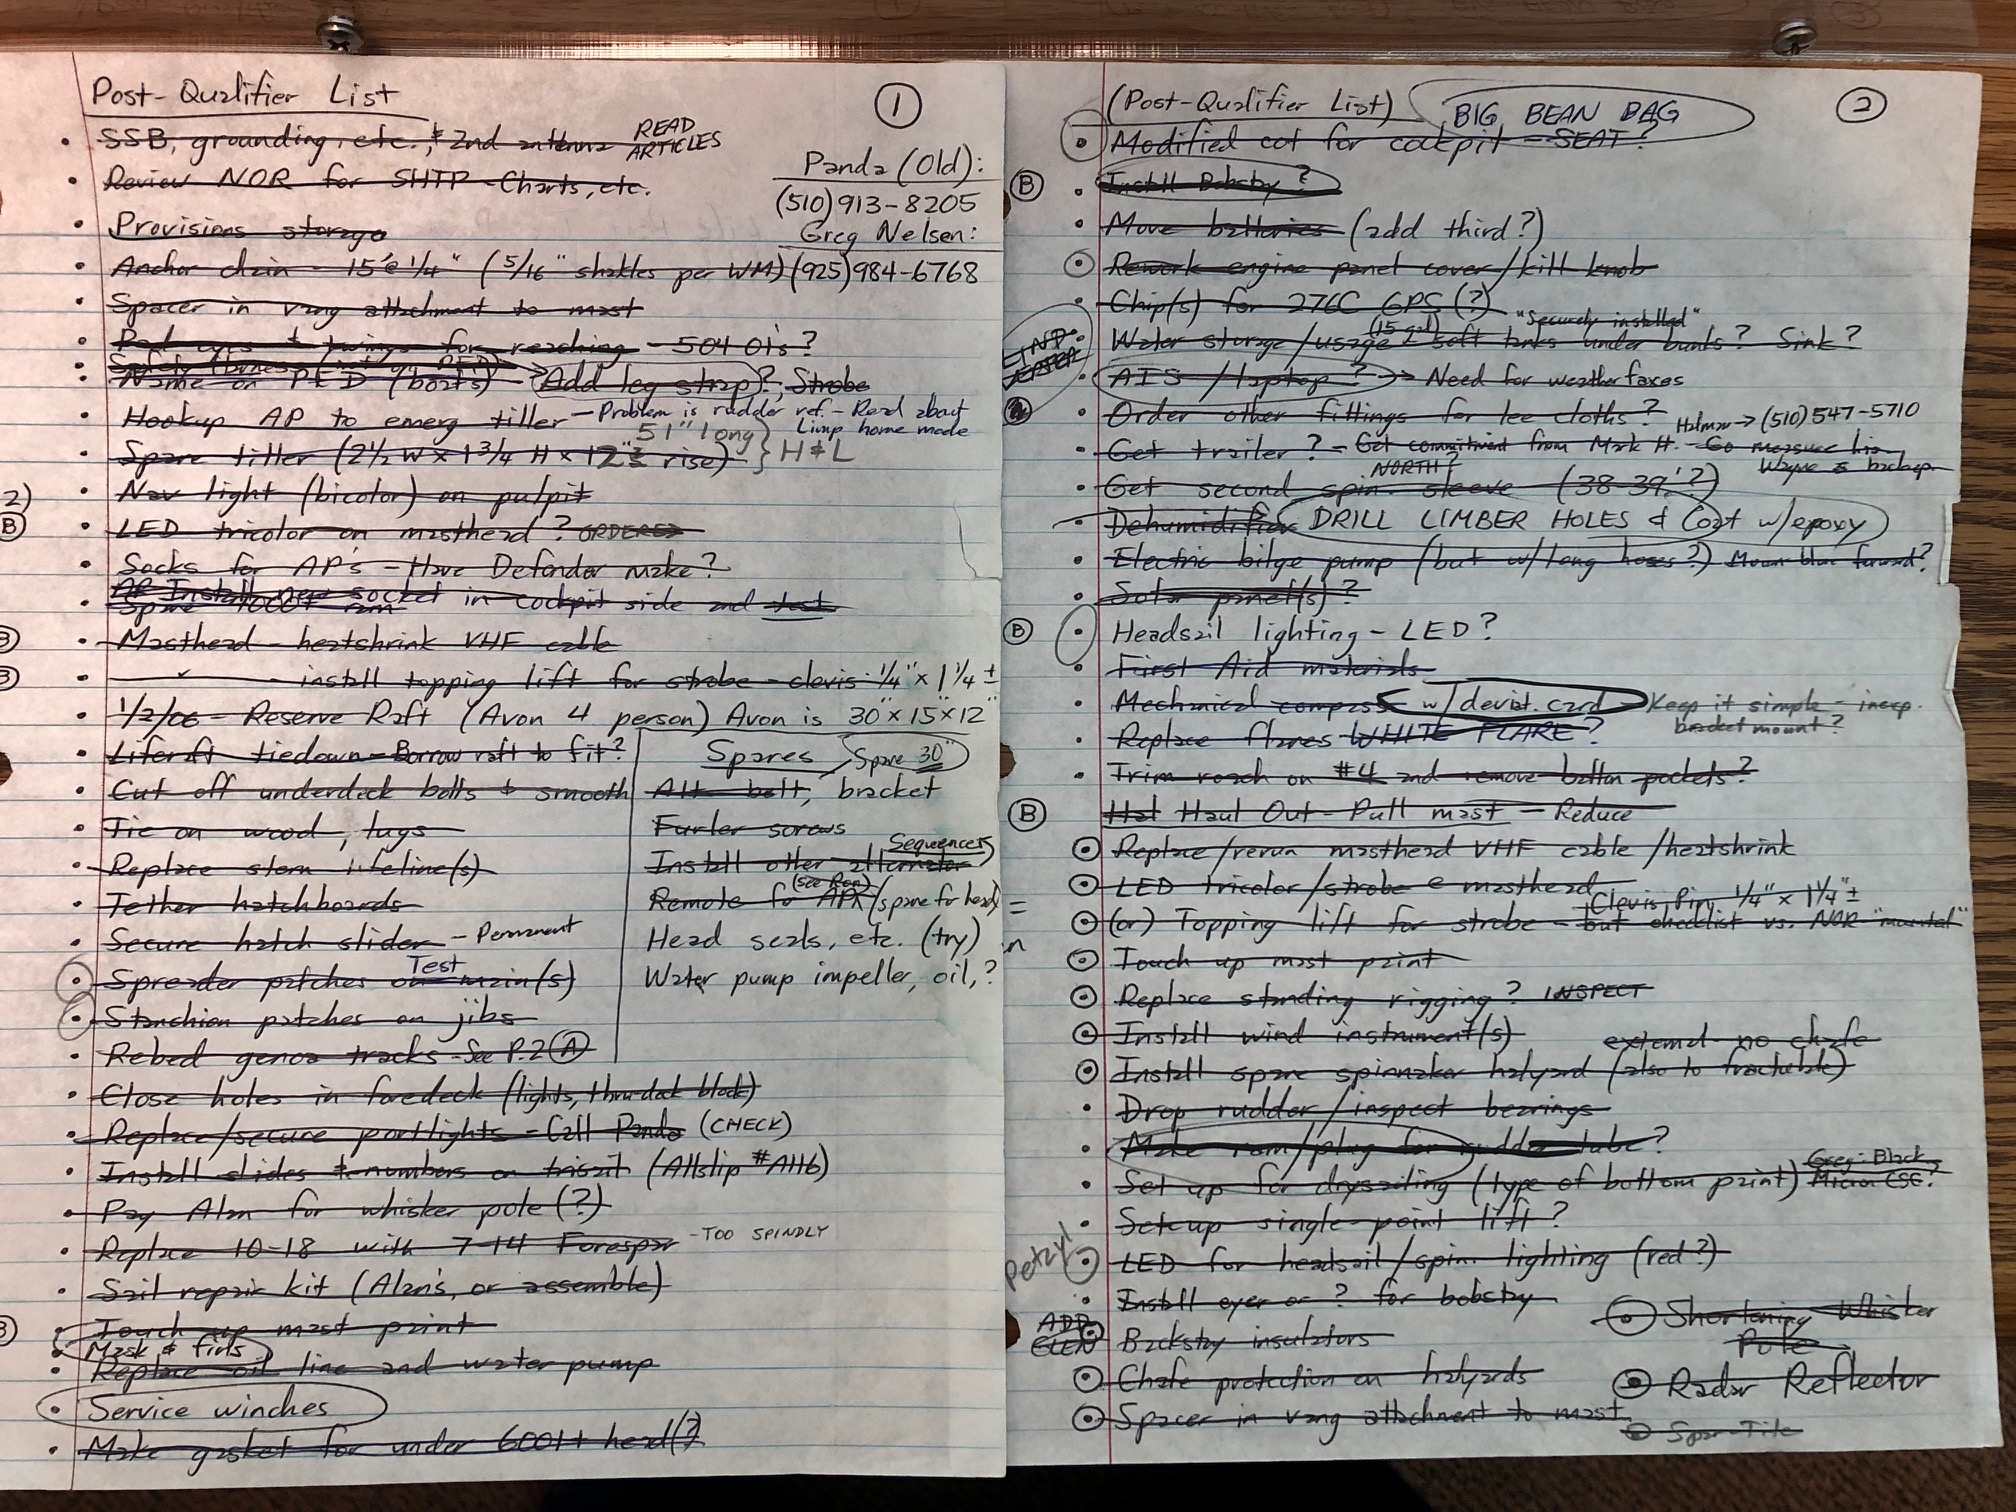 Post-Qualifier List
1
SSB, grounding, etc. & 2nd antenna READ ARTICLES
Panda (Old):
Review NOR for SHTP - Charts, etc.
(510) 913-8205
Provisions storage
Greg Nelsen:
Anchor chain - 15' @ 1/4" (5/16" shakles per WM) (925) 984-6768
Spacer in vang attachment to mast
Pad eyes + twings for reaching - 504 01's?
Name on PFD (boats) - Add leg strap?, Strobe
Hookup AP to emerg tiller - Problem is rudder ref. - Read about Limp home mode
51" long
Spare tiller (2 1/2 W x 1 3/4 H x 12" rise) } H & L
Nav light (bicolor) on pulpit
B LED tricolor on masthead? ORDERED
Socks for AP's - Have Defender make?
AP Install new socket in cockpit side and test
Spare 4000+ ram
Masthead - heatshrink VHF cable
- install topping lift for strobe - clevis 1/4" x 1 1/4 ±
1/2/06 - Reserve Raft (Avon 4 person) Avon is 30" x 15" x 12"
Liferaft tiedown - Borrow raft to fit?
Cut off underdeck bolts & smooth
Tie on wood, lugs
Replace stern lifeline(s)
Tether hatchboards
Secure hatch slider - Permanent
Spreader patches on main(s) Test
Stanchion patches on jibs
Rebed genoa tracks - See P.2 A
Spares, Spare 30"
Alt. belt, bracket
Furler screws
Install other alternator Sequences
Remote for APX (See Ron) / spare for head
Head seals, etc. (try)
Water pump impeller, oil, ?
Close holes in foredeck (lights, thru-deck block)
Replace/secure portlights - Call Panda (CHECK)
Install slides & numbers on trisail (Allslip #A116)
Pay Alan for whisker pole (?)
Replace 10-18 with 7-14 Forespar - TOO SPINDLY
Sail repair kit (Alan's, or assemble)
Touch up mast paint
Mask & fins
Replace oil line and water pump
Service winches
Make gasket for under 6001+ head(?)
(Post-Qualifier List) BIG BEAN BAG
2
Modified cot for cockpit - SEAT?
B Install Bobstay?
Move batteries (add third?)
Rework engine panel cover/kill knob
Chip(s) for 276C GPS (?)
Water storage/usage - soft tanks under bunks? Sink? (15 gal) "Securely installed"
AIS / laptop? → Need for weatherfaxes
Order other fittings for lee cloths?
Get trailer? - Get commitment from Mark H. - Go measure his Holman → (510) 547-5710
Wayne is backup
Get second spin. sleeve (38-39'?) NORTH?
Dehumidifier DRILL LIMBER HOLES & Coat w/epoxy
Electric bilge pump (but w/long hoses?) Move blue forward?
Solar panel(s)?
B Headsail lighting - LED?
First Aid materials
Mechanical compass w/deviat. card Keep it simple - inexp. bracket mount?
Replace flares WHITE FLARE?
Trim roach on #4 and remove batten pockets?
B Hal Haul Out - Pull mast - Reduce
Replace/rerun masthead VHF cable/heatshrink
LED tricolor/strobe @ masthead
Clevis Pin 1/4" x 1 1/4" ±
(or) Topping lift for strobe - but checklist vs. NOR "mantel"
Touch up mast paint
Replace standing rigging? INSPECT
Install wind instrument(s)
external - no chafe
Install spare spinnaker halyard (also to fractional)
Drop rudder/inspect bearings
Make room/plug for rudder tube?
Set up for drysailing (type of bottom paint) Greg: Black Micron CSC?
Setup single-point lift?
Petzyl LED for headsail/spin. lighting (red?)
Install eye or ? for bobstay
ADD GLEN Backstay insulators
Chafe protection on halyards
Spacer in vang attachment to mast
Shortening Whisker Pole
Radar Reflector
Spar-Tite